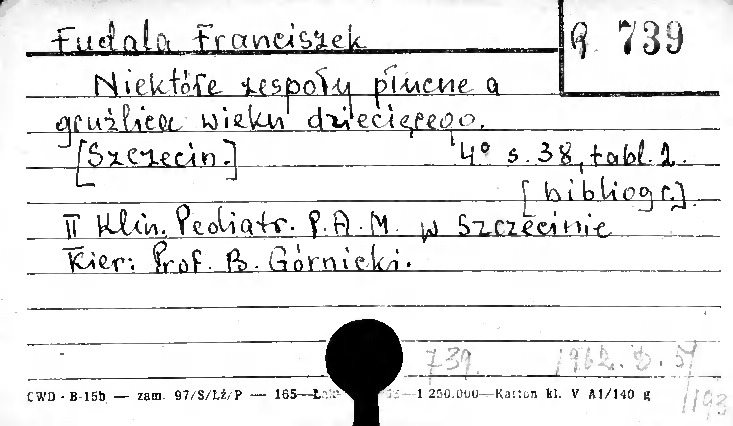 Fudala Franciszek
R. 739
Niektóre zespoły płucne a
gruźlica wieku dziecięcego.
[Szczecin.] 4° s. 38, tabl. 2.
[bibliogr.]
II Klin. Pediatr. P.A.M. w Szczecinie
Kier: Prof. B. Górnicki.
739. 1962. D. 57
/193
CWD - B-15b — zam. 97/S/Lż/P — 165— —1 250.000—Karton kl. V A1/140 g